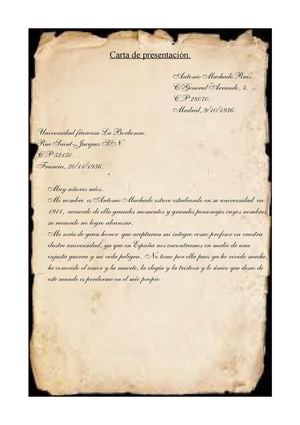 Carta de presentación.
Antonio Machado Ruiz.
C/General Arrando, 4.
C.P 28070.
Madrid, 9/10/1936.
Universidad francesa La Borbonne.
Rue Saint-Jacques S/N.
C.P 52150.
Francia, 20/11/1936.
Muy señores míos.
Mi nombre es Antonio Machado estuve estudiando en su universidad en
1911, recuerdo de ella grandes momentos y grandes personajes cuyos nombres
mi recuerdo no logra alcanzar.
Me sería de gran honor que aceptaran mi integro como profesor en vuestra
ilustre universidad, ya que en España nos encontramos en medio de una
injusta guerra y mi vida peligra. No temo por ella pues ya he vivido mucho
he conocido el amor y la muerte, la elegía y la tristeza y lo único que deseo de
este mundo es perderme en el mío propio